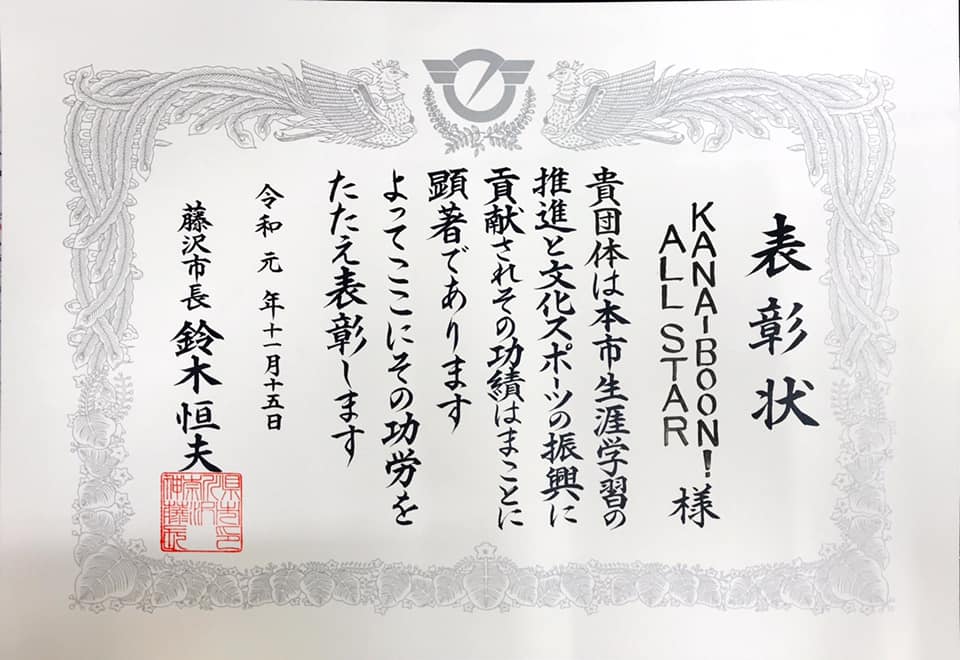 表彰状
KANA-BOON!
ALL STAR 様
貴団体は本市生涯学習の
推進と文化スポーツの振興に
貢献されその功績はまことに
顕著であります
よってここにその功労を
たたえ表彰します
令和元年十一月十五日
藤沢市長 鈴木恒夫